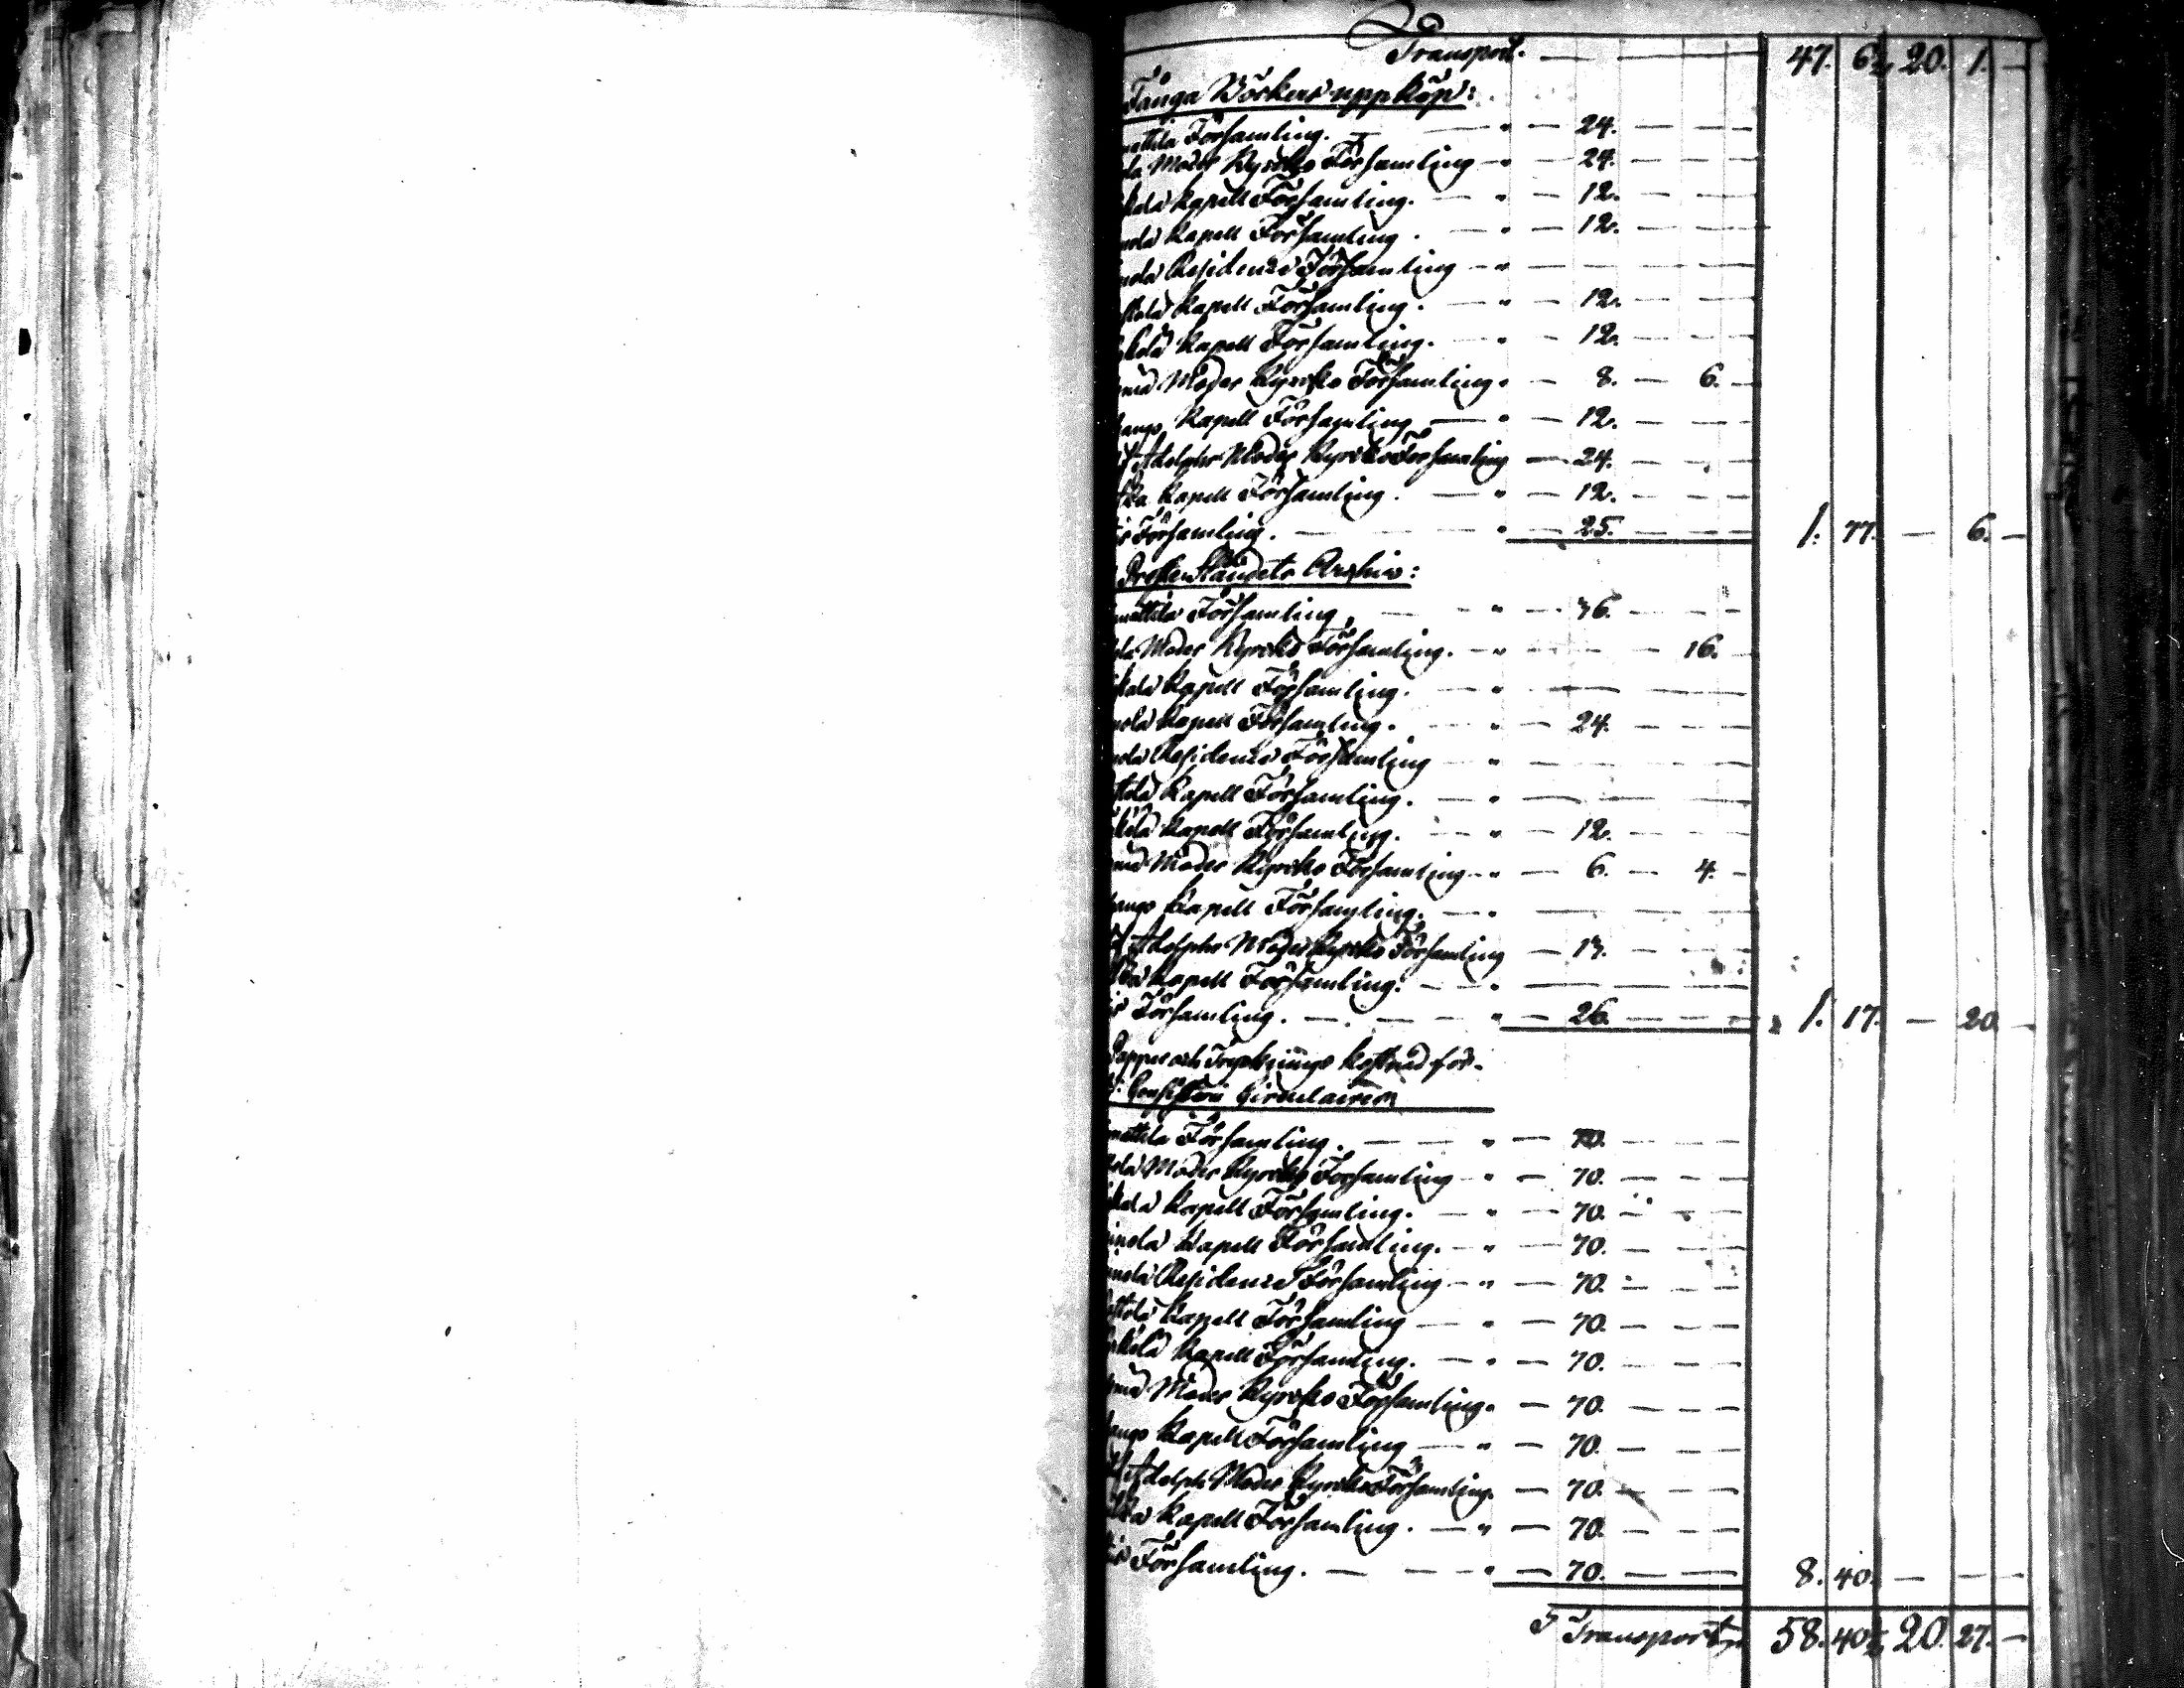 Transport. — — 47. 6½ 20. 1. —
Fånga Wårkens uppköp:
mattila Församling. — " — 24. — —
la Moder Kyrcko Församling — " — 24. — —
kela Kapell Församling. — " — 12. — —
nola Kapell Församling. — " — 12. — —
nola Residence Församling — " — — —
ttola Kapell Församling. — " — 12. — —
kela Kapell Församling. — " — 12. — —
Moder Kyrcko Församling. — 8. — 6. —
Kapell Församling — " — 12. — —
Adolphs Moder Kyrcko Församling — 24. — —
Kapell Församling. — " — 12. — —
Församling. — " — 25. — — 1. 77. — 6. —
Archiv:
mattila Församling, — " — 36. — —
la Moder Kyrcko Församling. — " — — 16. —
kela Kapell Församling. — " — — —
nola Kapell Församling. — " — 24. — —
nola Residence Församling — " — — —
ttola Kapell Församling. — " — — —
kela Kapell Församling. — " — 12. — —
Moder Kyrcko Församling — " — 6. — 4. —
Kapell Församling. — " — — —
Adolphs Moder Kyrcko Församling — 13. — —
Kapell Församling. — " — — —
Församling. — " — 26. — — 1. 17. — 20. —
Papper och Trycknings kostnad för
Consistorii Circulairen
mattila Församling. — " — 70. — —
Moder Kyrcko Församling — " — 70. — —
kela Kapell Församling. — " — 70. — —
nola Kapell Församling. — " — 70. — —
nola Residence Församling — " — 70. — —
ttola Kapell Församling — " — 70. — —
kela Kapell Församling. — " — 70. — —
Moder Kyrcko Församling. — 70. — —
Kapell Församling — " — 70. — —
Adolphs Moder Kyrcko Församling. — 70. — —
Kapell Församling. — " — 70. — —
Församling. — " — 70. — — 8. 40. — — —
Transport 58. 40½ 20. 27. —